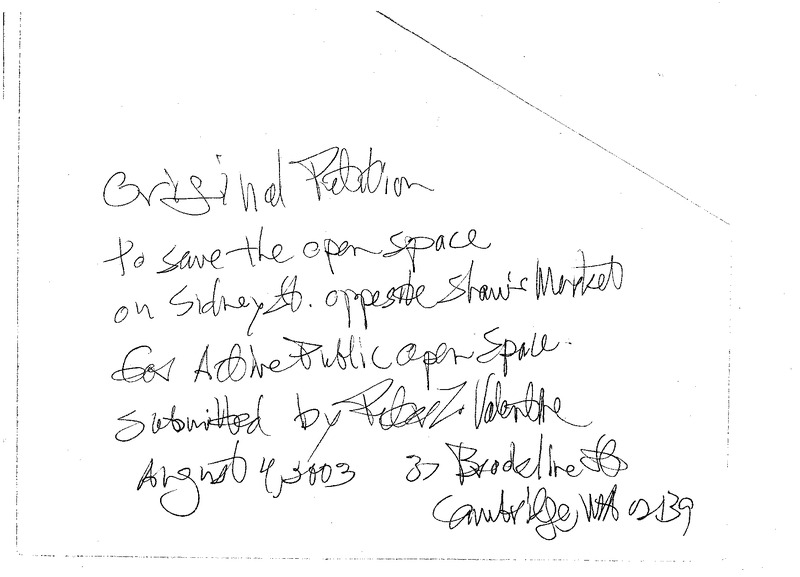 Original Petition
to save the open space
on Sidney St. opposite Shaw's Market
for Active Public open Space.
Submitted by Peter Valentine
August 4, 2003 37 Brookline St
Cambridge, MA 02139